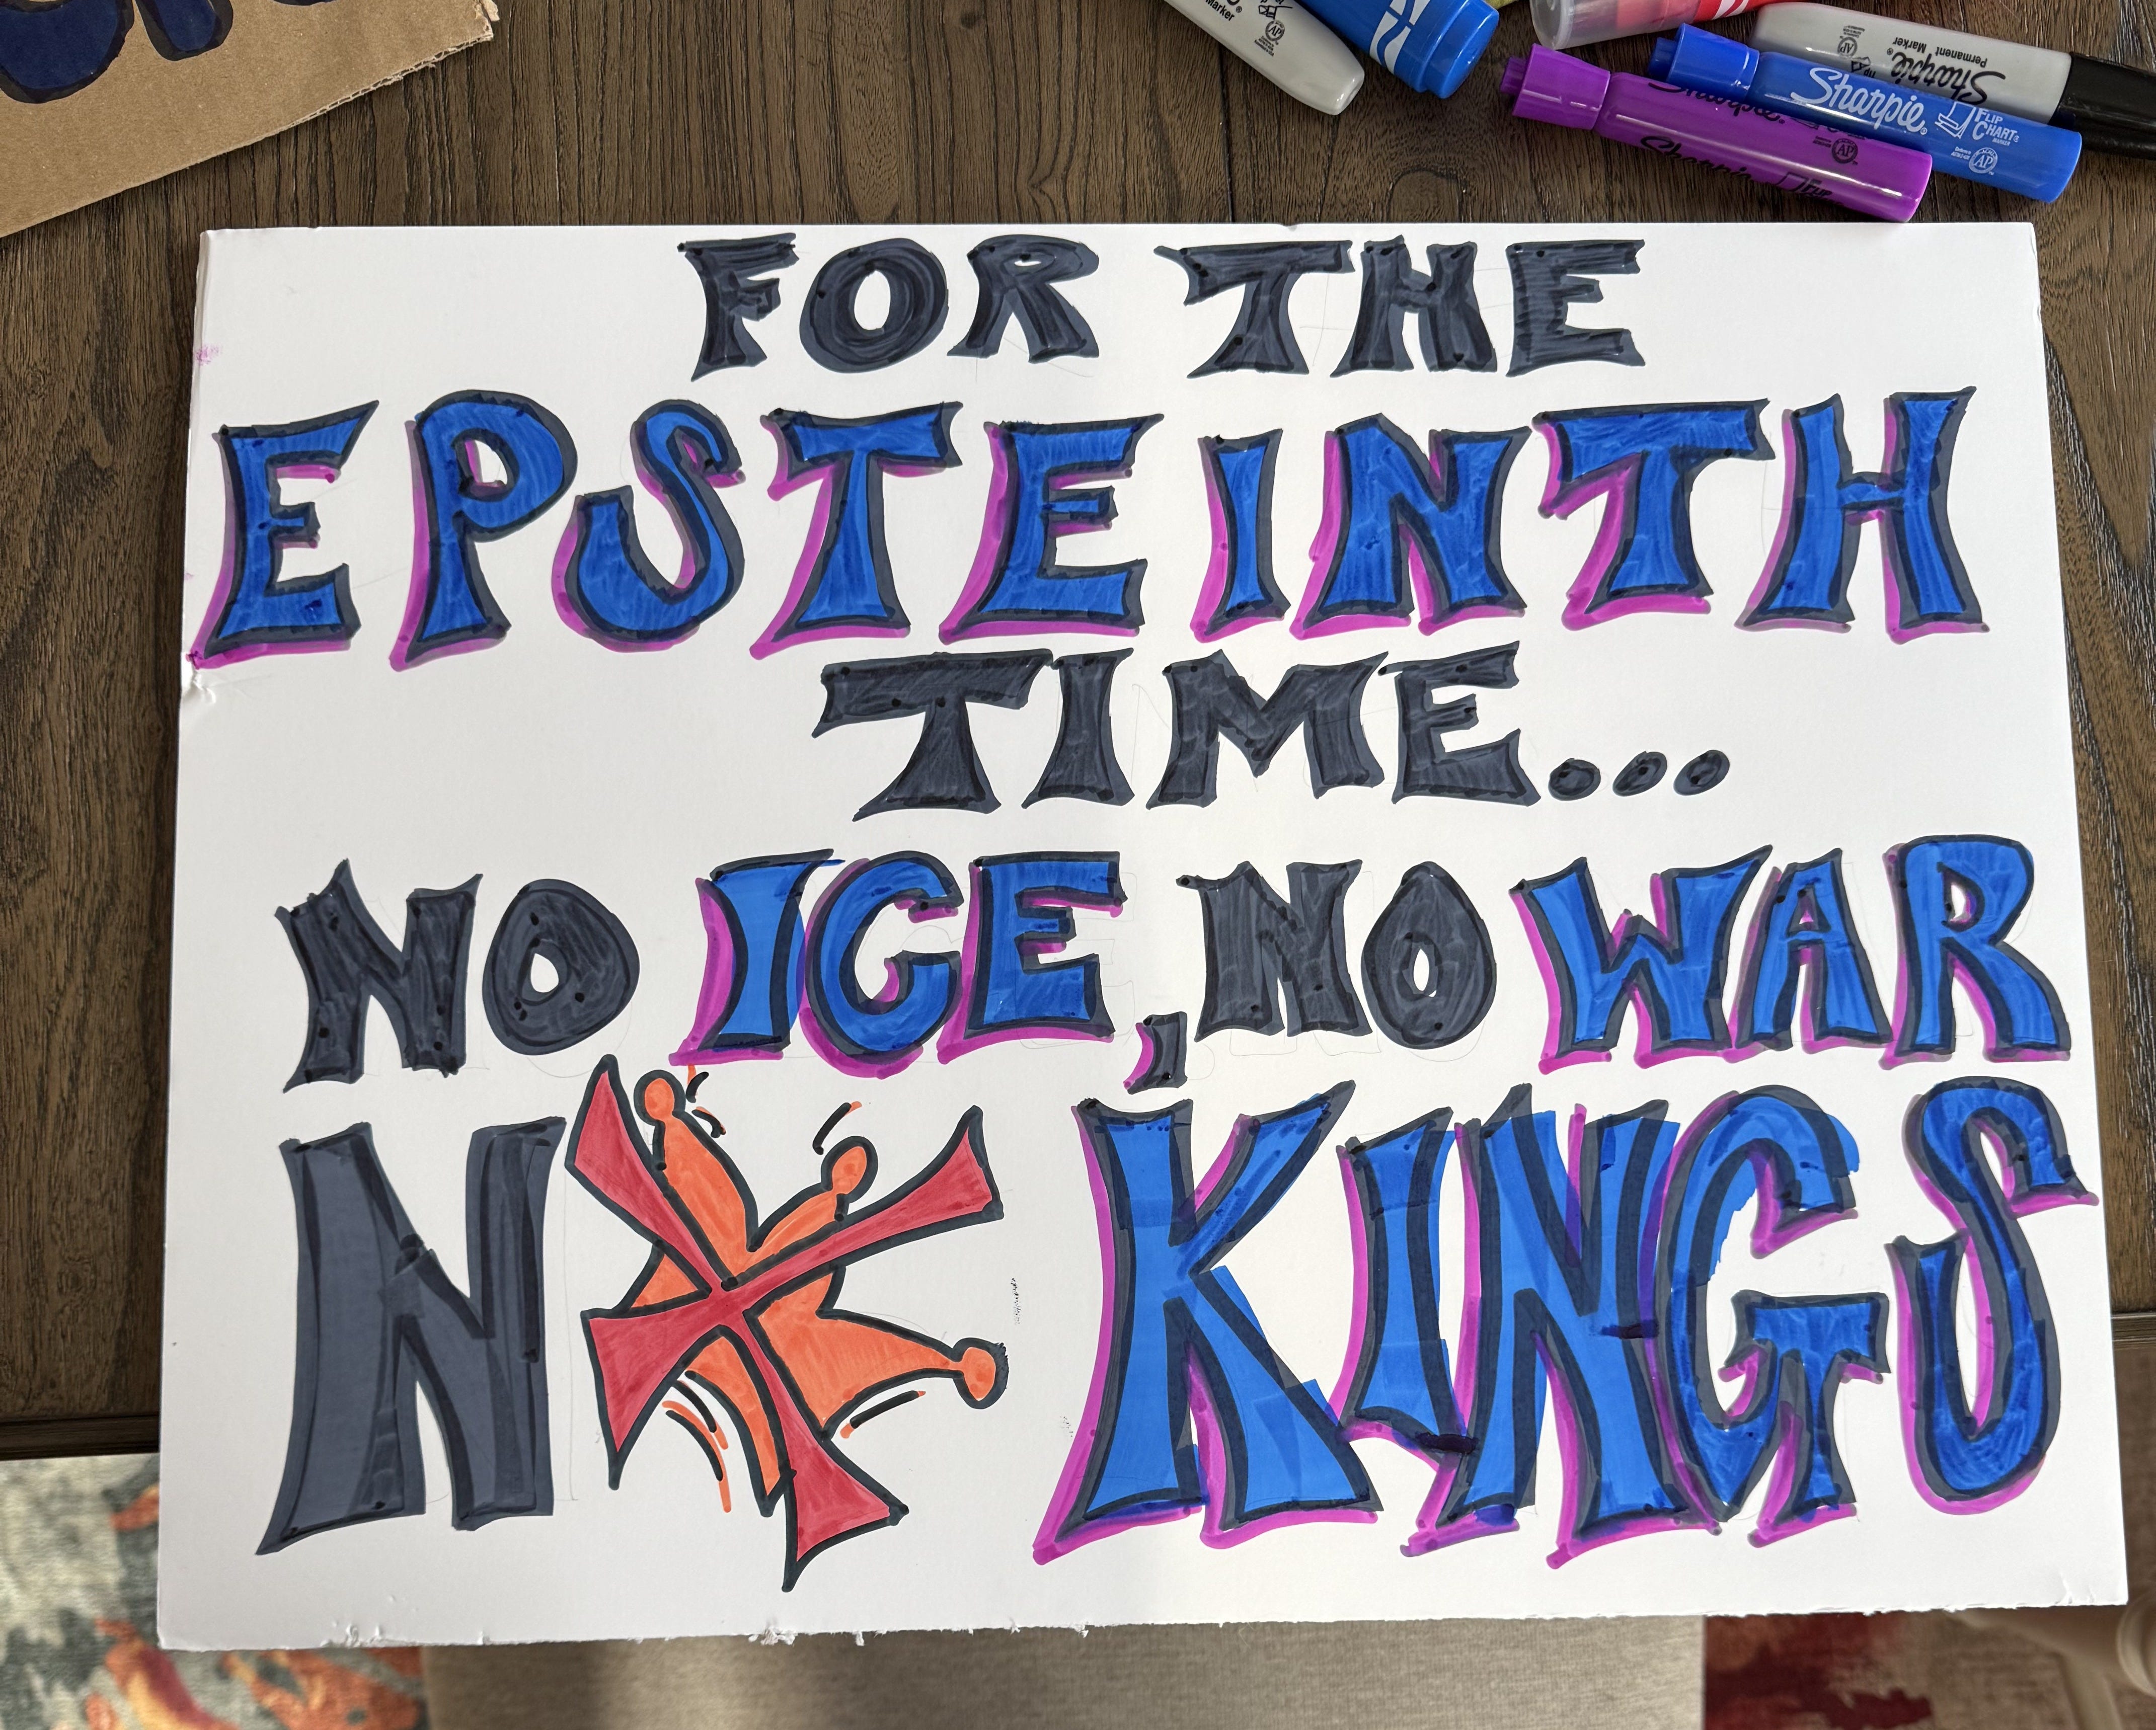 Marker
Sharpie
Permanent Marker
Sharpie FLIP CHART MARKER
AP
Sharpie
AP
FOR THE
EPSTEINTH
TIME...
NO ICE, NO WAR
N KINGS